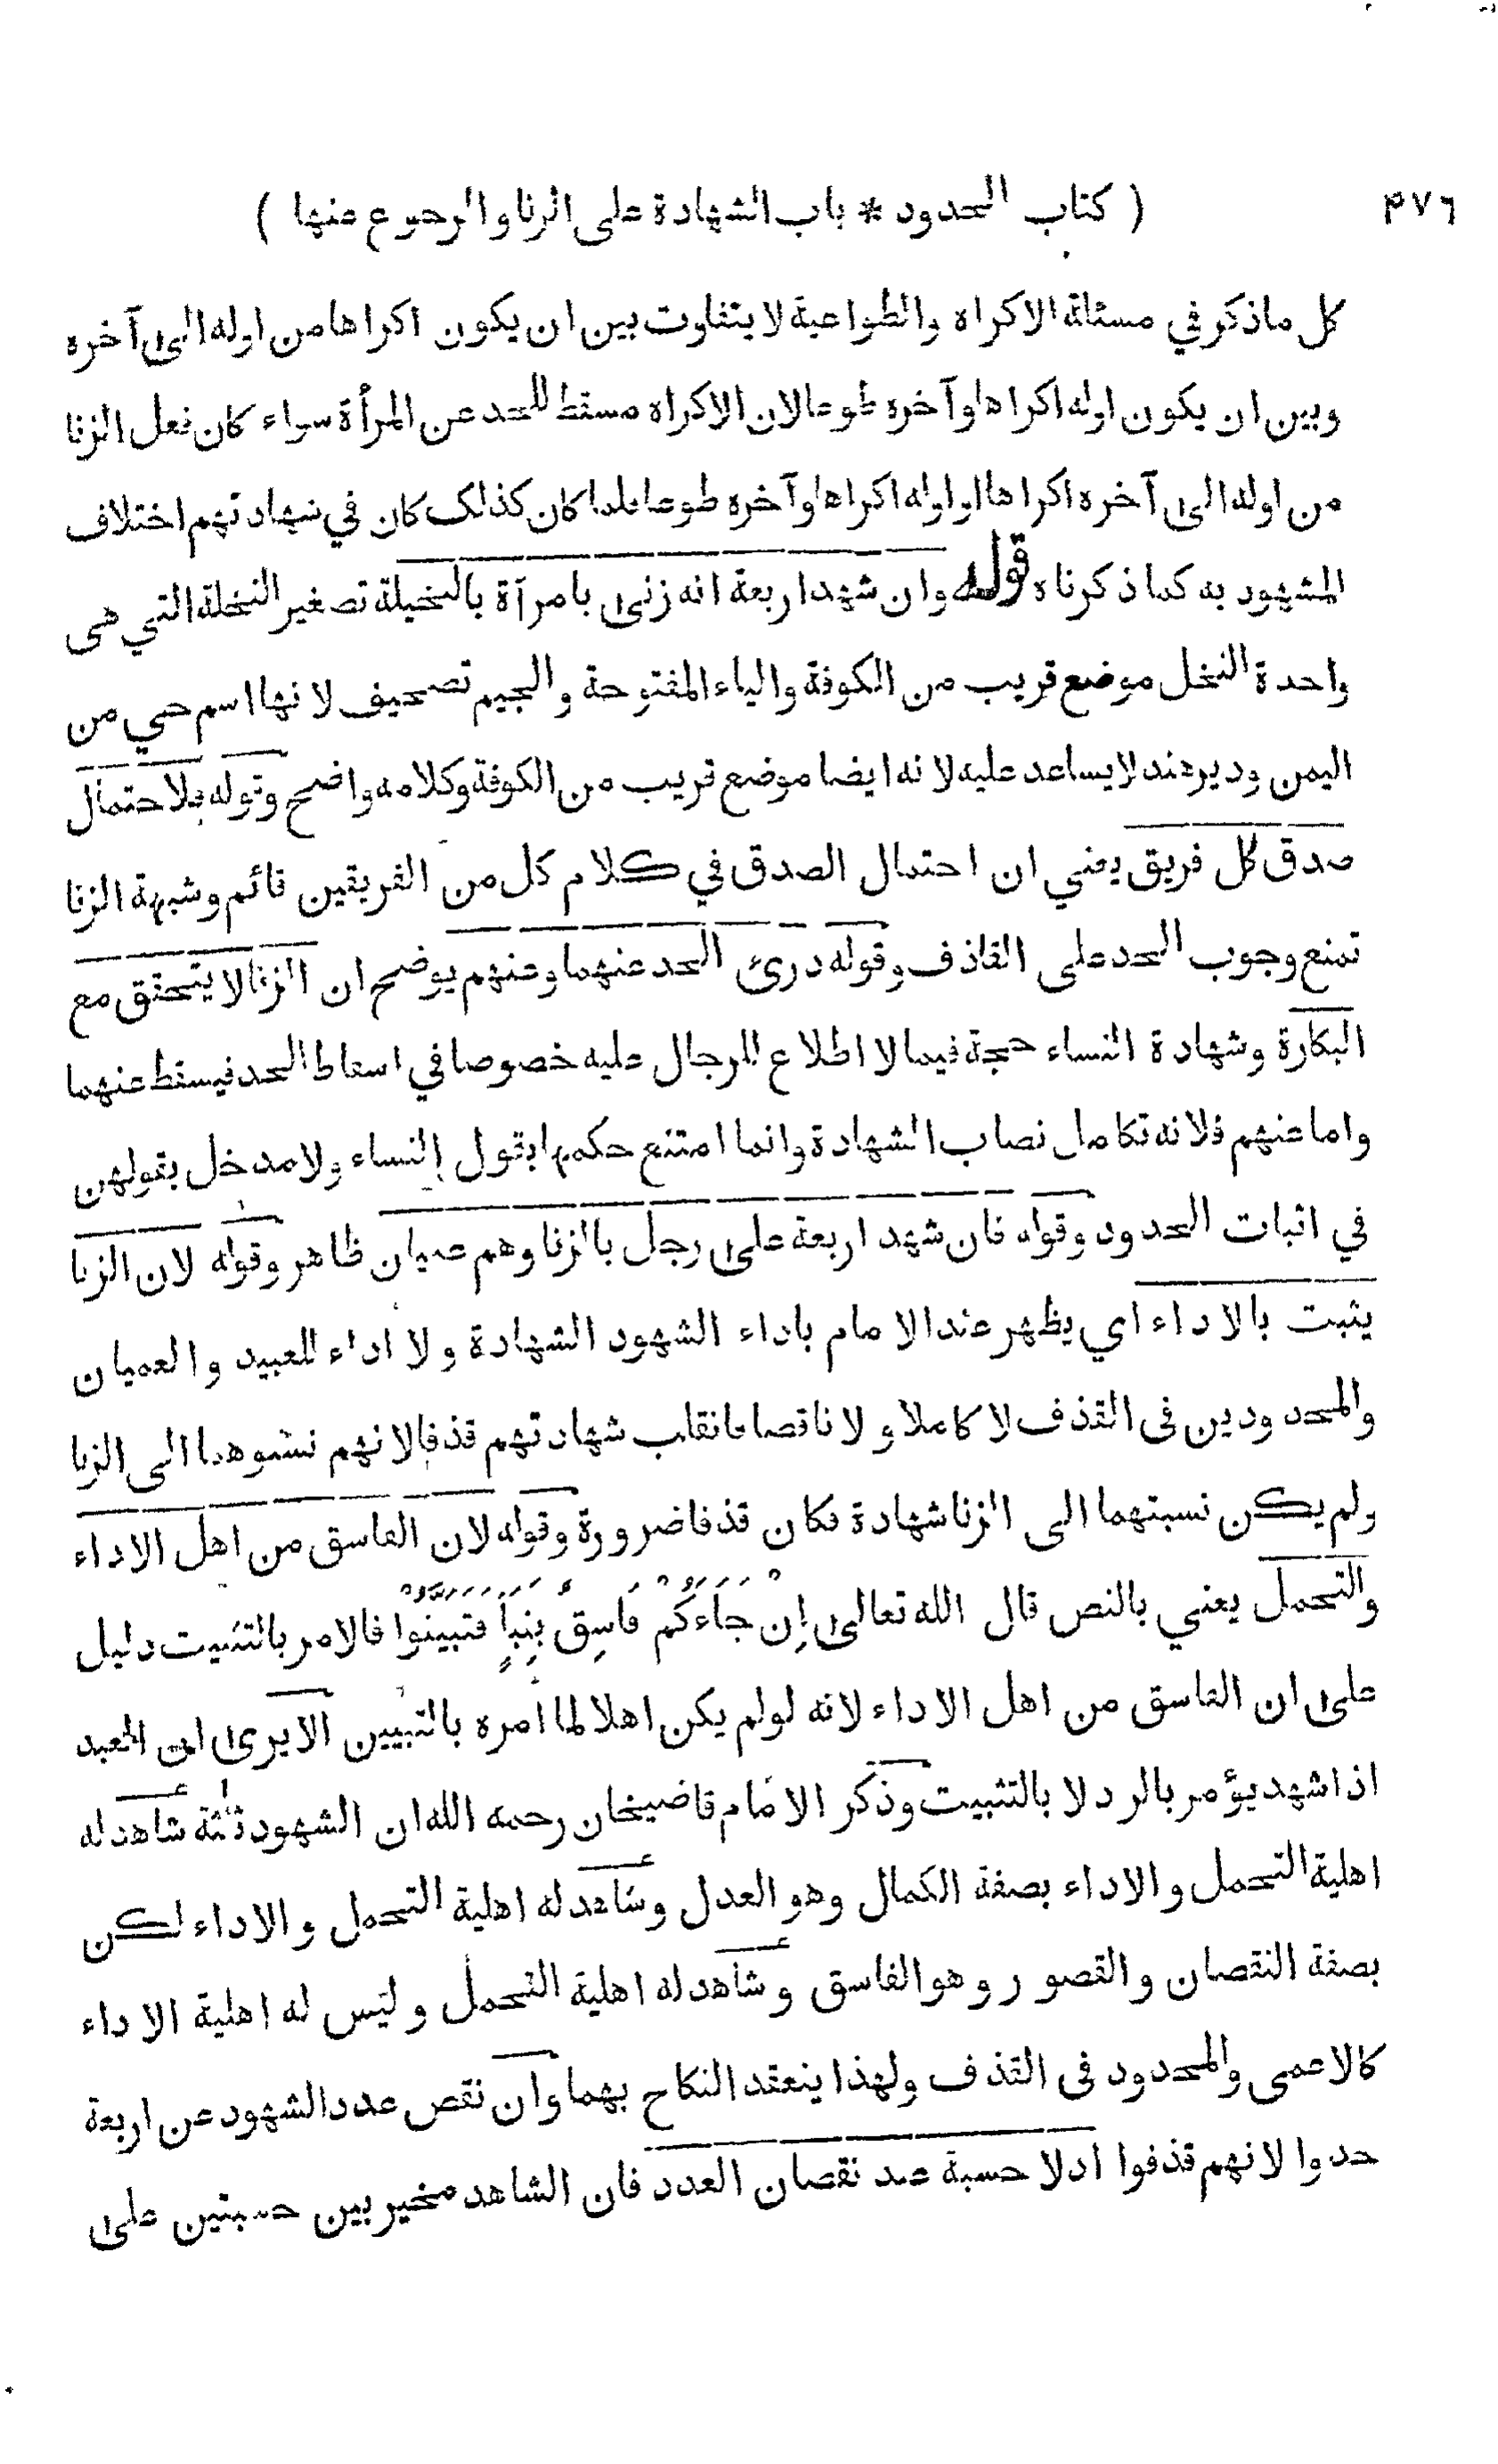 ( كتاب الحدود * باب الشهادة على الزنا والرجوع عنها ) ٤٧٦
كل ماذكر في مسئلة الاكراه والطواعية لا يتفاوت بين ان يكون اكراها من اوله الى آخره
وبين ان يكون اوله اكراها وآخره طوعا لان الاكراه مسقط للحد عن المرأة سواء كان فعل الزنا
من اوله الى آخره اكراها او اوله اكراها وآخره طوعا فلما كان كذلك كان في شهادتهم اختلاف
المشهود به كما ذكرناه قوله وان شهد اربعة انه زنى بامرأة بالنخيلة تصغير النخلة التي هى
واحدة النخل موضع قريب من الكوفة والياء المفتوحة والجيم تصحيف لانها اسم حي من
اليمن ودير هند لا يساعد عليه لانه ايضا موضع قريب من الكوفة وكلامه واضح وقوله فلاحتمال
صدق كل فريق يعني ان احتمال الصدق في كلام كل من الفريقين قائم وشبهة الزنا
تمنع وجوب الحد على القاذف وقوله درئ الحد عنهما وعنهم يوضح ان الزنا لا يتحقق مع
البكارة وشهادة النساء حجة فيما لا اطلاع للرجال عليه خصوصا في اسقاط الحد فيسقط عنهما
واما عنهم فلانه تكامل نصاب الشهادة وانما امتنع حكمها بقول النساء ولا مدخل بقولهن
في اثبات الحدود وقوله فان شهد اربعة على رجل بالزنا وهم عميان ظاهر وقوله لان الزنا
يثبت بالاداء اي يظهر عند الامام باداء الشهود الشهادة ولا اداء للعبيد والعميان
والمحدودين فى القذف لا كاملا ولا ناقصا فانقلب شهادتهم قذفا لانهم نسبوهما الى الزنا
ولم يكن نسبتهما الى الزنا شهادة فكان قذفا ضرورة وقوله لان الفاسق من اهل الاداء
والتحمل يعني بالنص قال الله تعالى إِنْ جَاءَكُمْ فَاسِقٌ بِنَبَأٍ فَتَبَيَّنُوْا فالامر بالتثبيت دليل
على ان الفاسق من اهل الاداء لانه لولم يكن اهلا لما امره بالتبيين الا يرى ان العبد
اذا شهد يؤمر بالرد لا بالتثبيت وذكر الامام قاضيخان رحمه الله ان الشهود ثلثة شاهد له
اهلية التحمل والاداء بصفة الكمال وهو العدل وشاهد له اهلية التحمل والاداء لكن
بصفة النقصان والقصور وهو الفاسق وشاهد له اهلية التحمل وليس له اهلية الاداء
كالاعمى والمحدود فى القذف ولهذا ينعقد النكاح بهما وان نقص عدد الشهود عن اربعة
حدوا لانهم قذفوا اذلا حسبة عند نقصان العدد فان الشاهد مخير بين حسبتين على